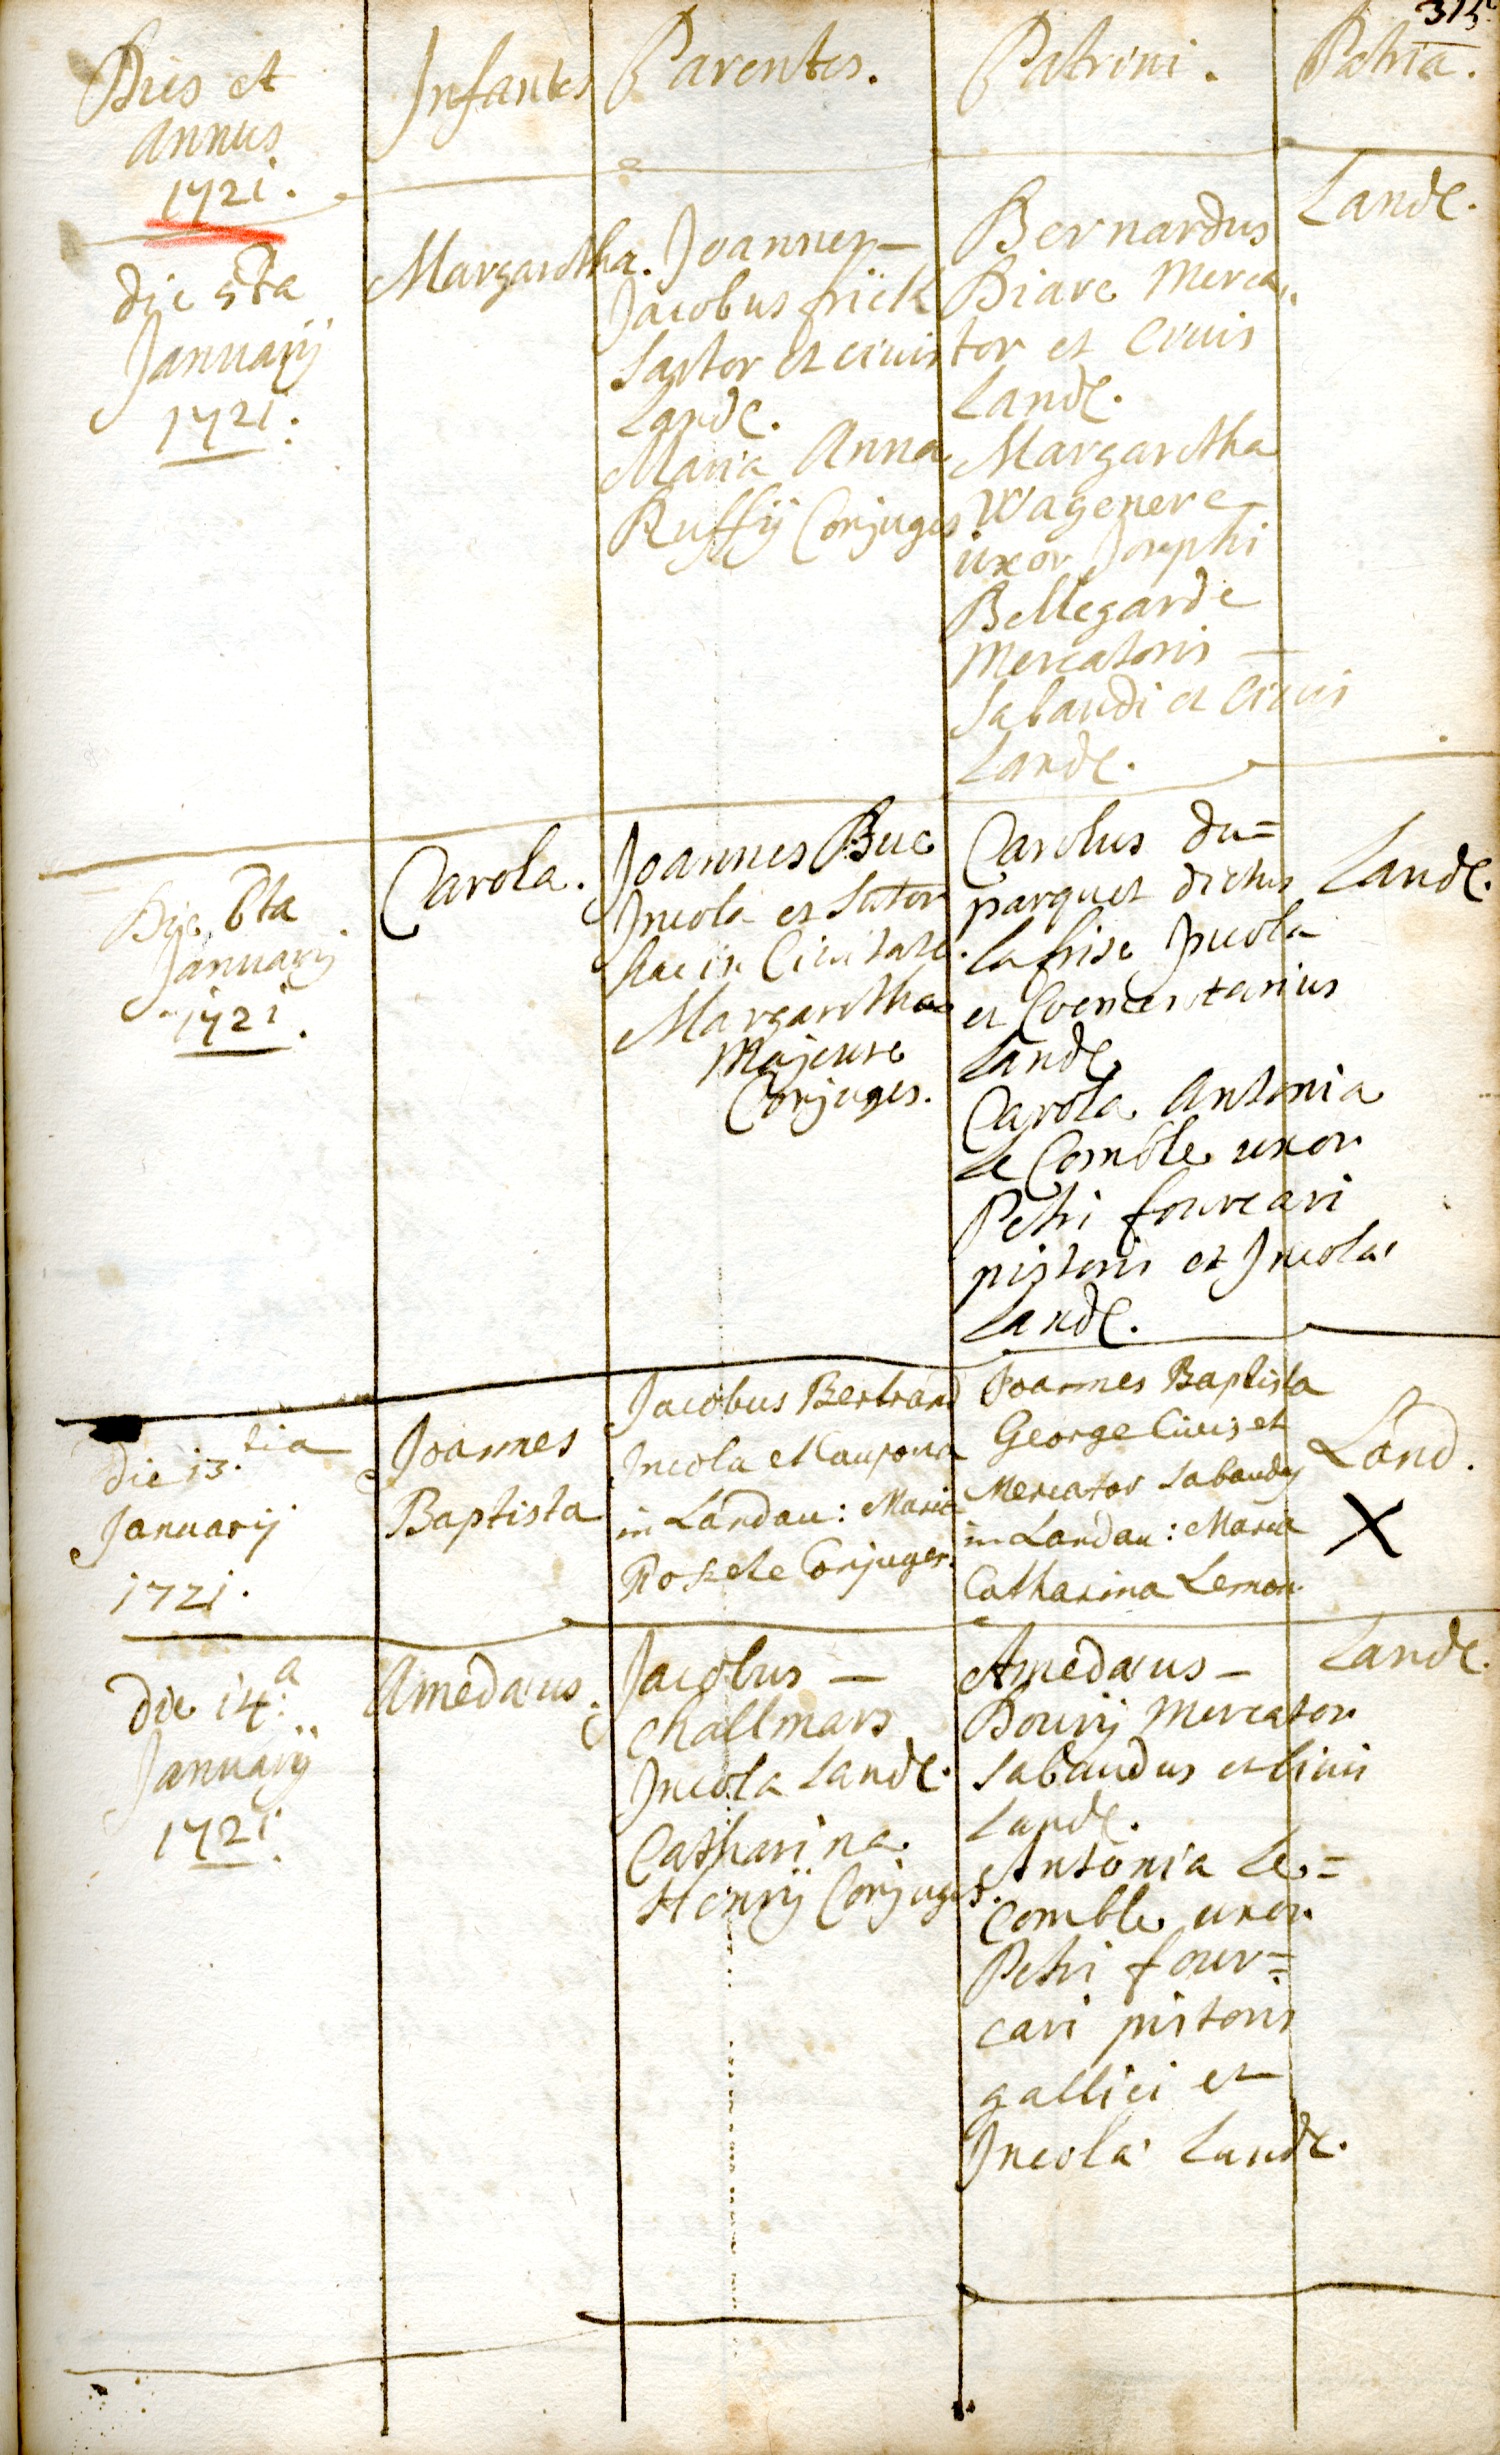 315
Dies et
annus
1721.
Infantes
Parentes.
Patrini.
Patria.
die 5ta
Januarij
1721.
Margaretha.
Joannes
Jacobus frick
Sartor et civis
Land.
Maria Anna
Ruffÿ Conjuges
Bernardus
Biare Merca„
tor et Civis
Land.
Margaretha
Wagenere
uxor Josephi
Bellegarde
Mercatoris
Sabaudi et Civis
Land.
Land.
Die 6ta
Januarij
1721.
Carola.
Joannes Buc
Incola et Sutor
hac in Civitate.
Margaretha
Majeure
Conjuges.
Carolus du=
parquet dictus
la frise Incola
et Coementarius
Land.
Carola Antonia
le Comble uxor
Petri fourcari
pistoris et Incola
Land.
Land.
die 13.tia
Januarij
1721.
Joannes
Baptista
Jacobus Bertrand
Incola et Caupona
in Landau: Maria
Conjuges.
Joannes Baptista
George Civis et
Mercator Sabaudy
in Landau: Maria
Catharina Lemon
Land.
X
die 14.a
Januarij
1721.
Amedæus.
Jacobus
Challmars
Incola Land.
Catharina
Henrÿ Conjuges.
Amedæus
Bourij Mercator
Sabaudus et Civis
Land.
Antonia Le=
comble uxor
Petri four=
cari pistoris
gallici et
Incola Land.
Land.